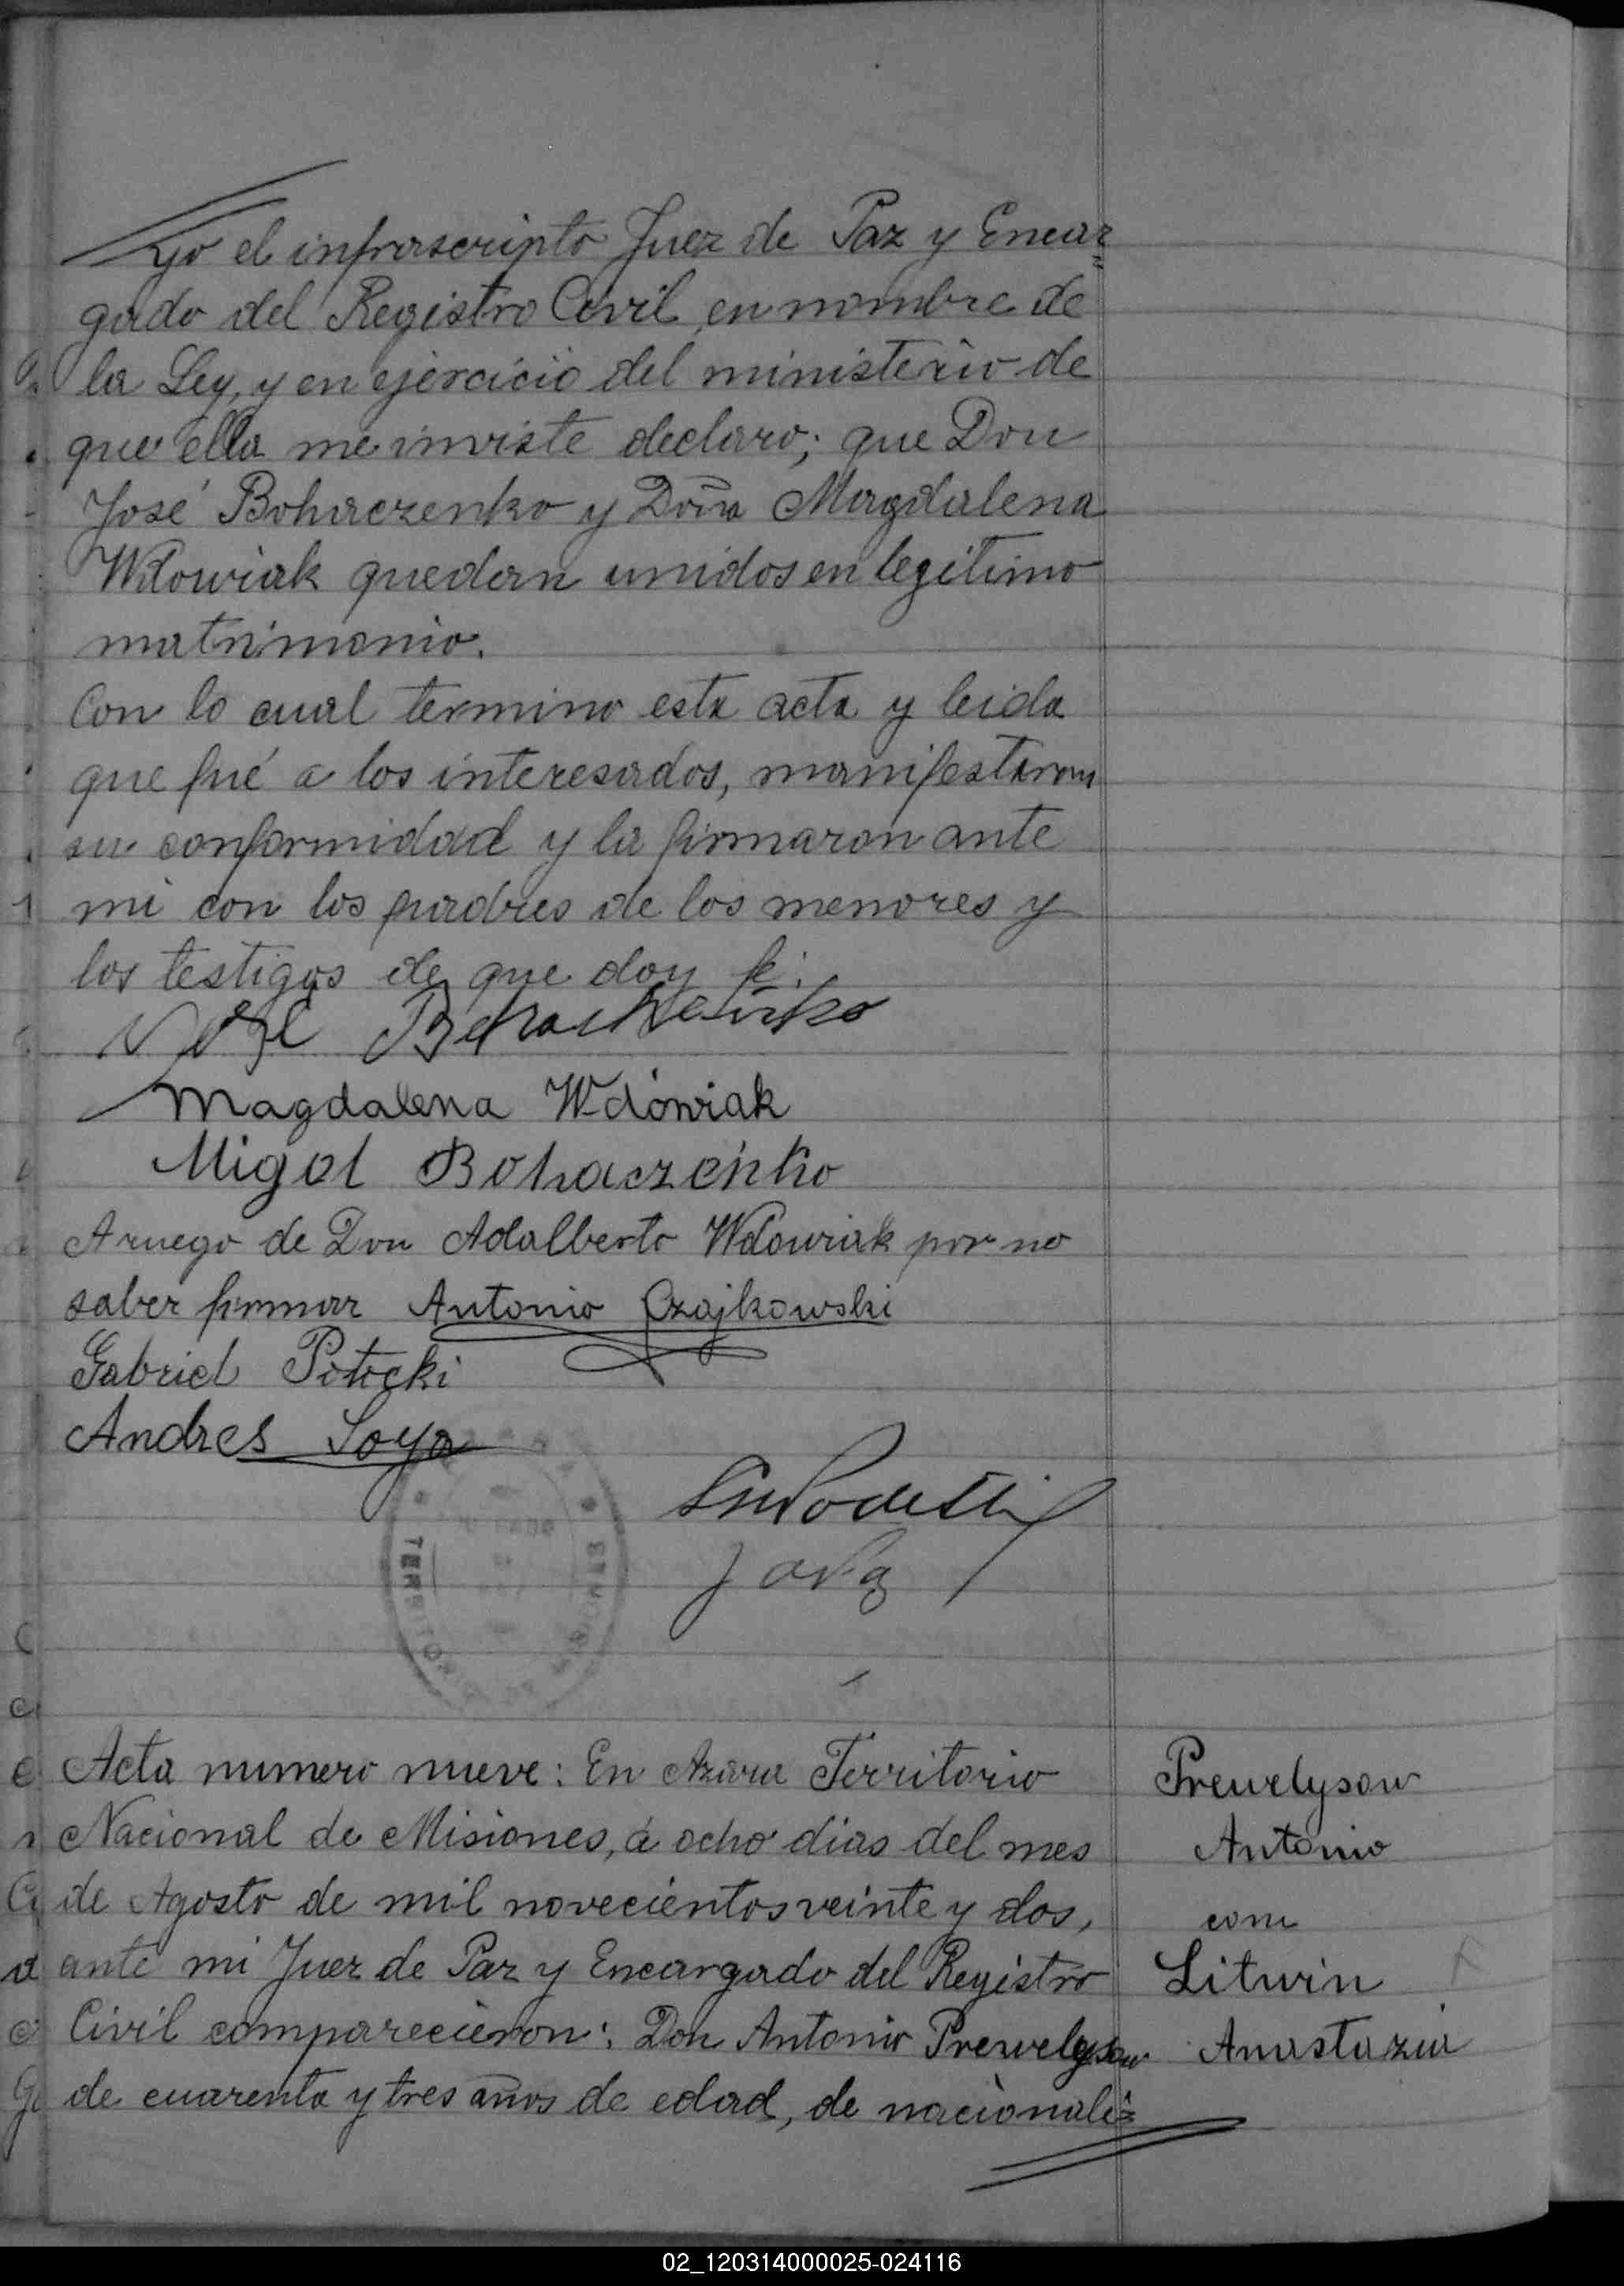 Yo el infrascripto Juez de Paz y Encar=
gado del Registro Civil, en nombre de
la Ley, y en ejercicio del ministerio de
que ella me inviste declaro; que Don
José Bohaczenko y Doña Magdalena
Wdowiak quedan unidos en legitimo
matrimonio.
Con lo cual termino esta acta y leida
que fué a los interesados, manifestaron
su conformidad y la firmaron ante
mi con los padres de los menores y
los testigos de que doy fe.
Magdalena Wdówiak
Migel Bohaczeńko
A ruego de Don Adalberto Wdowiak por no
saber firmar Antonio Czajkowski
Gabriel Potocki
Andres Soya
TERRITO
Acta numero nueve: En Azara Territorio
Nacional de Misiones, á ocho dias del mes
de Agosto de mil novecientos veinte y dos,
ante mi Juez de Paz y Encargado del Registro
Civil comparecieron: Don Antonio Prewelysow
de cuarenta y tres años de edad, de nacionali=
Prewelysow
Antonio
con
Litwin
Anastazia
02_120314000025-024116